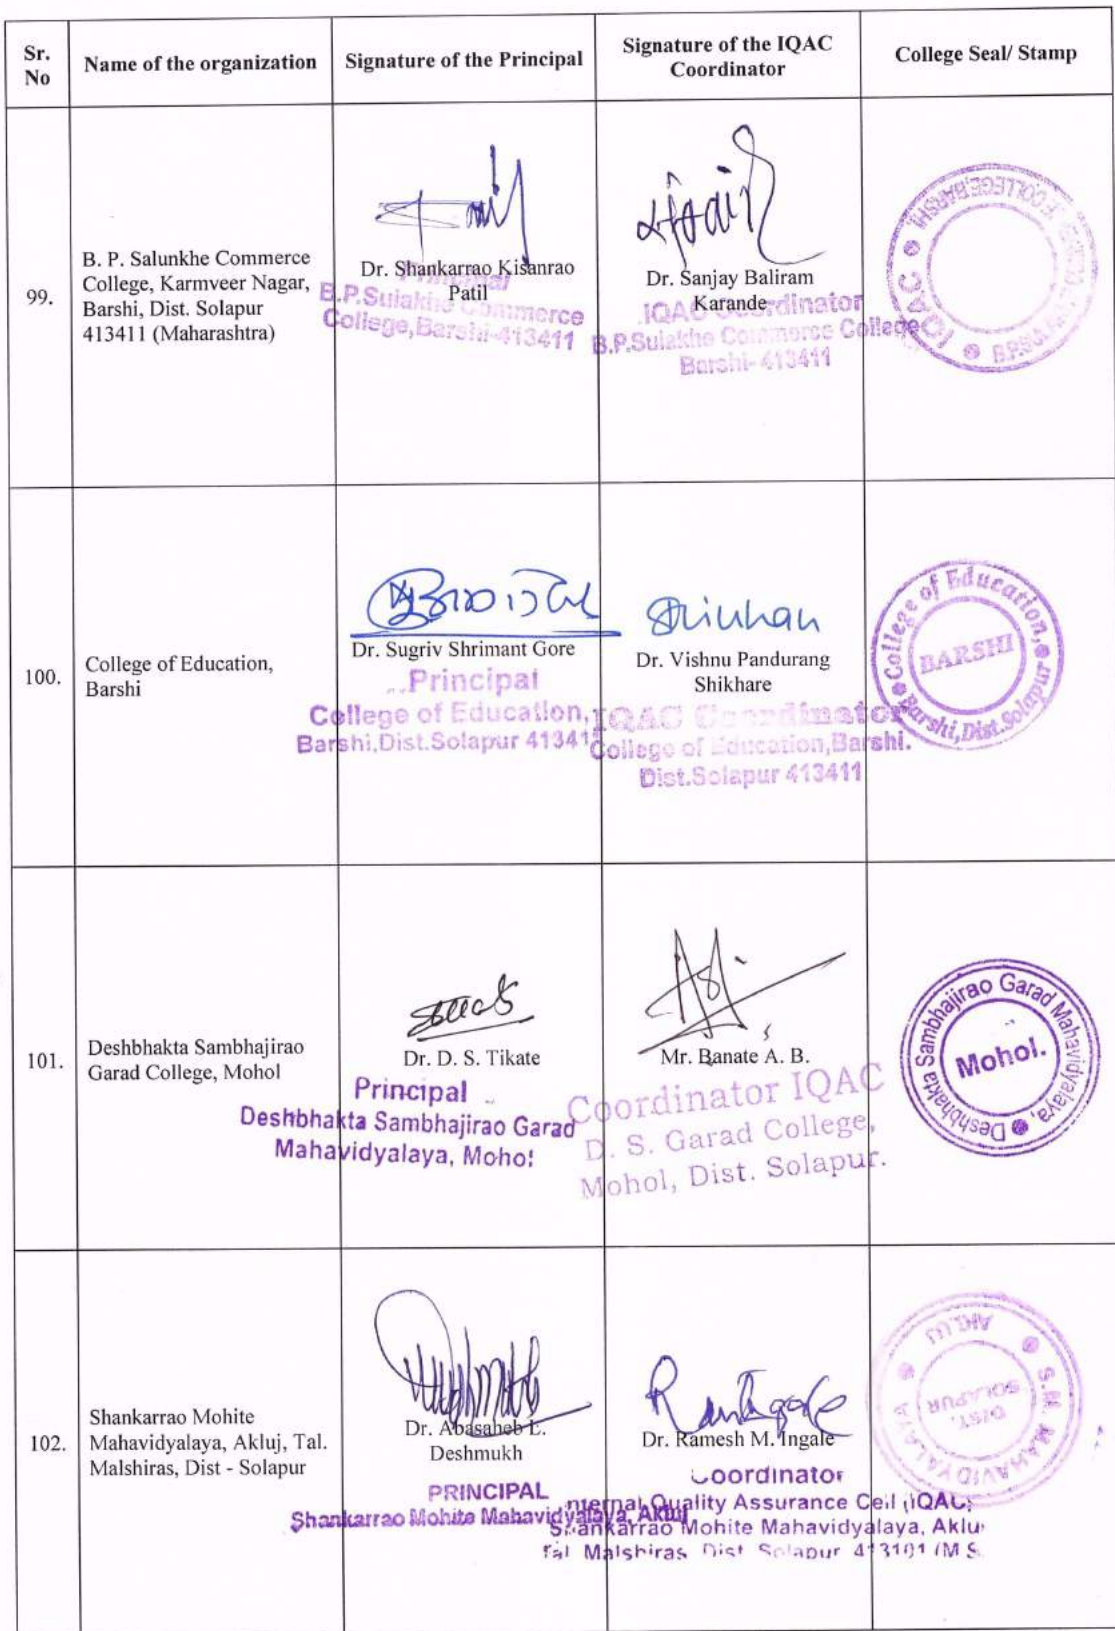 Sr. No
Name of the organization
Signature of the Principal
Signature of the IQAC
Coordinator
College Seal/ Stamp
99.
B. P. Salunkhe Commerce
College, Karmveer Nagar,
Barshi, Dist. Solapur
413411 (Maharashtra)
Dr. Shankarrao Kisanrao
Patil
Principal
B.P.Sulakhe Commerce
College,Barshi-413411
Dr. Sanjay Baliram
Karande
IQAC Coordinator
B.P.Sulakhe Commerce College
Barshi-413411
IQAC
COLLEGE,BARSHI.
100.
College of Education,
Barshi
Dr. Sugriv Shrimant Gore
Principal
College of Education,
Barshi,Dist.Solapur 41341
Dr. Vishnu Pandurang
Shikhare
IQAC Coordinator
College of Education,Barshi.
Dist.Solapur 413411
College of Education,
Barshi,Dist.Solapur
BARSHI
101.
Deshbhakta Sambhajirao
Garad College, Mohol
Dr. D. S. Tikate
Principal
Deshbhakta Sambhajirao Garad
Mahavidyalaya, Mohol
Mr. Banate A. B.
Coordinator IQAC
D. S. Garad College,
Mohol, Dist. Solapur.
Deshbhakta Sambhajirao Garad Mahavidyalaya,
Mohol.
102.
Shankarrao Mohite
Mahavidyalaya, Akluj, Tal.
Malshiras, Dist - Solapur
Dr. Abasaheb L.
Deshmukh
PRINCIPAL
Shankarrao Mohite Mahavidyalaya, Akluj
Dr. Ramesh M. Ingale
Coordinator
Internal Quality Assurance Cell (IQAC)
Shankarrao Mohite Mahavidyalaya, Akluj
Tal Malshiras Dist Solapur 413101 (M S
S.M. MAHAVIDYALAYA
AKLUJ
DIST.
SOLAPUR